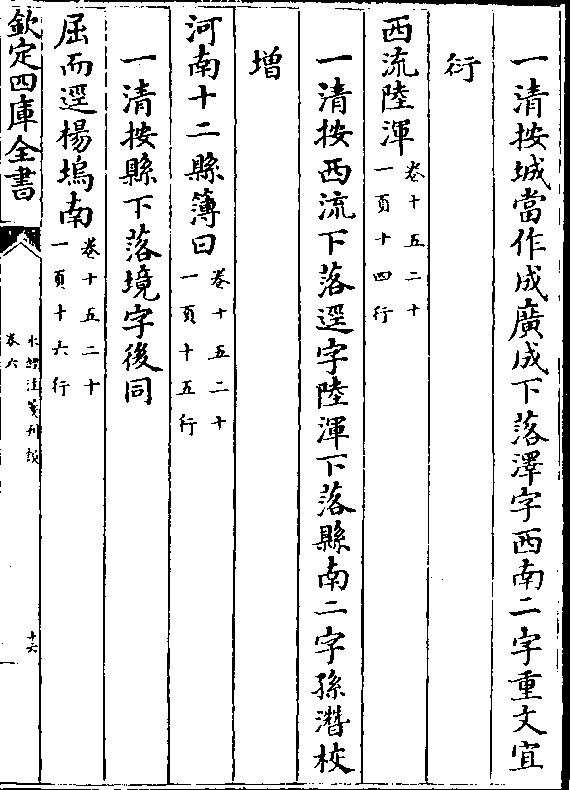 一清按城當作成廣成下落澤字西南二字重文宜
衍
西流陸渾卷十五二十一頁十四行
一清按西流下落逕字陸渾下落縣南二字孫潛校
增
河南十二縣簿曰卷十五二十一頁十五行
一清按縣下落境字後同
屈而逕楊塢南卷十五二十一頁十六行
欽定四庫全書
水經注箋刊誤
卷六
十六